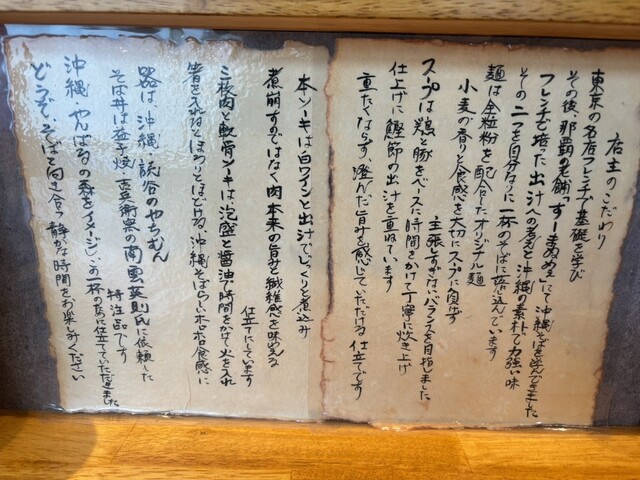 店主のこだわり
東京の名店フレンチで基礎を学び
その後、那覇の老舗「すーまぬめぇ」にて沖縄そばを学んできました
フレンチで培った出汁への考えと沖縄の素朴で力強い味
その二つを自分なりに一杯のそばに落とし込んでいます
麺は全粒粉を配合したオリジナル麺
小麦の香りと食感を大切にスープに負けず
主張しすぎないバランスを目指しました
スープは鶏と豚をベースに時間をかけて丁寧に炊き上げ
仕上げに鰹節の出汁を重ねています
重たくならず、澄んだ旨みを感じていただける仕立てです
本ソーキは白ワインと出汁でじっくりと煮込み
煮崩すのではなく肉本来の旨みと繊維感を味わえる
仕立てにしています
三枚肉と軟骨ソーキは泡盛と醤油で時間をかけて火を入れ
箸を入れるとほろりとほどける、沖縄そばらしいホロホロ食感に
器は、沖縄・読谷のやちむん
そば丼は益子焼・
の南雲英則氏に依頼した
特注品です
沖縄・やんばるの森をイメージし、この一杯の為に仕立てていただきました
どうぞ、そばと向き合う静かな時間をお楽しみください